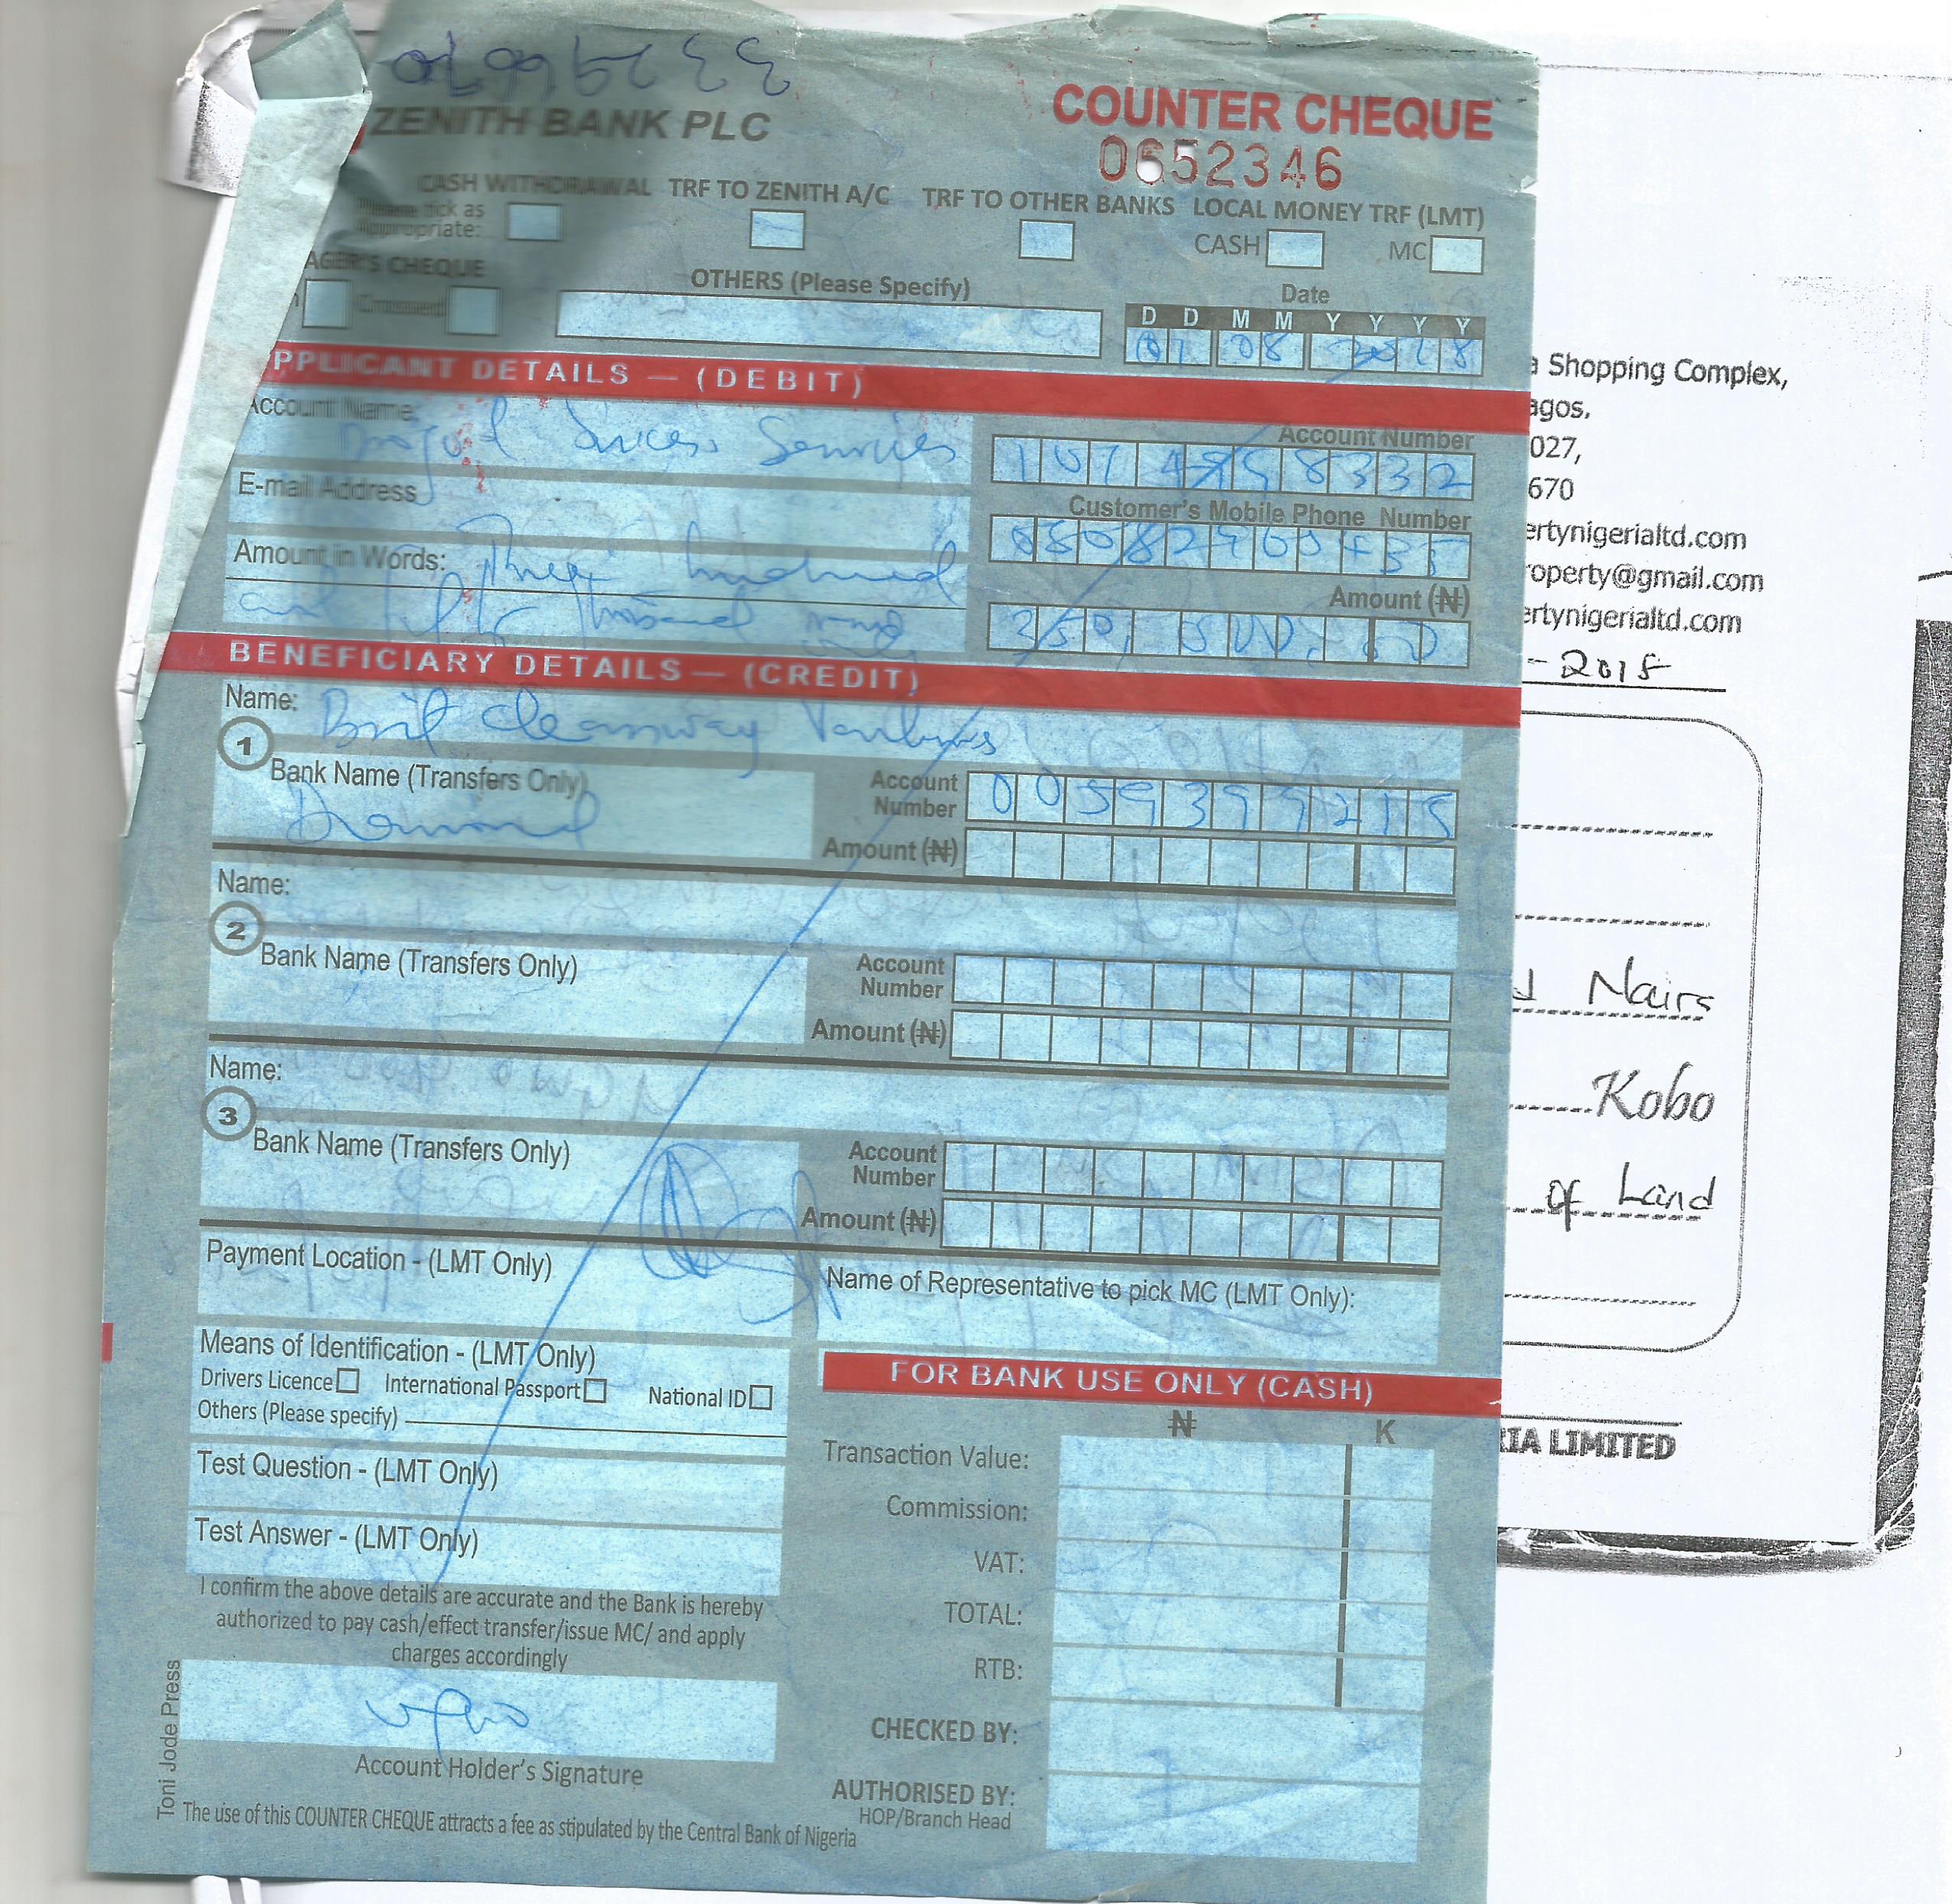 ZENITH BANK PLC
COUNTER CHEQUE
0652346
CASH WITHDRAWAL TRF TO ZENITH A/C TRF TO OTHER BANKS LOCAL MONEY TRF (LMT)
Please tick as
Appropriate:
CASH MC
AGER'S CHEQUE
Crossed
OTHERS (Please Specify)
Date
D D M M Y Y Y Y
01 08 2018
PPLICANT DETAILS — (DEBIT)
Account Name
Success Services
Account Number
E-mail Address
Customer's Mobile Phone Number
Amount in Words: Three hundred
and fifty thousand
Amount (₦)
BENEFICIARY DETAILS — (CREDIT)
Name: Brit Cleanway Ventures
1
Bank Name (Transfers Only)
Diamond
Account
Number
0059399215
Amount (₦)
Name:
2
Bank Name (Transfers Only)
Account
Number
Amount (₦)
Name:
3
Bank Name (Transfers Only)
Account
Number
Amount (₦)
Payment Location - (LMT Only)
Name of Representative to pick MC (LMT Only):
Means of Identification - (LMT Only)
Drivers Licence International Passport National ID
Others (Please specify)
Test Question - (LMT Only)
Test Answer - (LMT Only)
I confirm the above details are accurate and the Bank is hereby
authorized to pay cash/effect transfer/issue MC/ and apply
charges accordingly
Account Holder's Signature
FOR BANK USE ONLY (CASH)
₦ K
Transaction Value:
Commission:
VAT:
TOTAL:
RTB:
CHECKED BY:
AUTHORISED BY:
HOP/Branch Head
Toni Jode Press
The use of this COUNTER CHEQUE attracts a fee as stipulated by the Central Bank of Nigeria
a Shopping Complex,
agos,
027,
670
ertynigerialtd.com
roperty@gmail.com
ertynigerialtd.com
Naira
Kobo
of Land
IA LIMITED